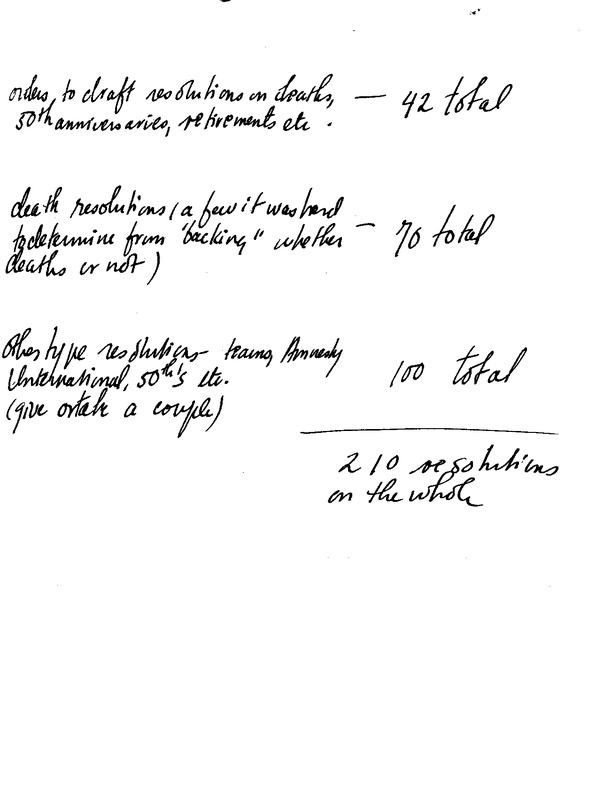 orders, to draft resolutions on deaths, — 42 total
50th anniversaries, retirements etc.
death resolutions (a few it was hard
to determine from "backing" whether — 70 total
deaths or not)
Other type resolutions - teams, Amnesty
International, 50th's etc. 100 total
(give or take a couple)
210 resolutions
on the whole